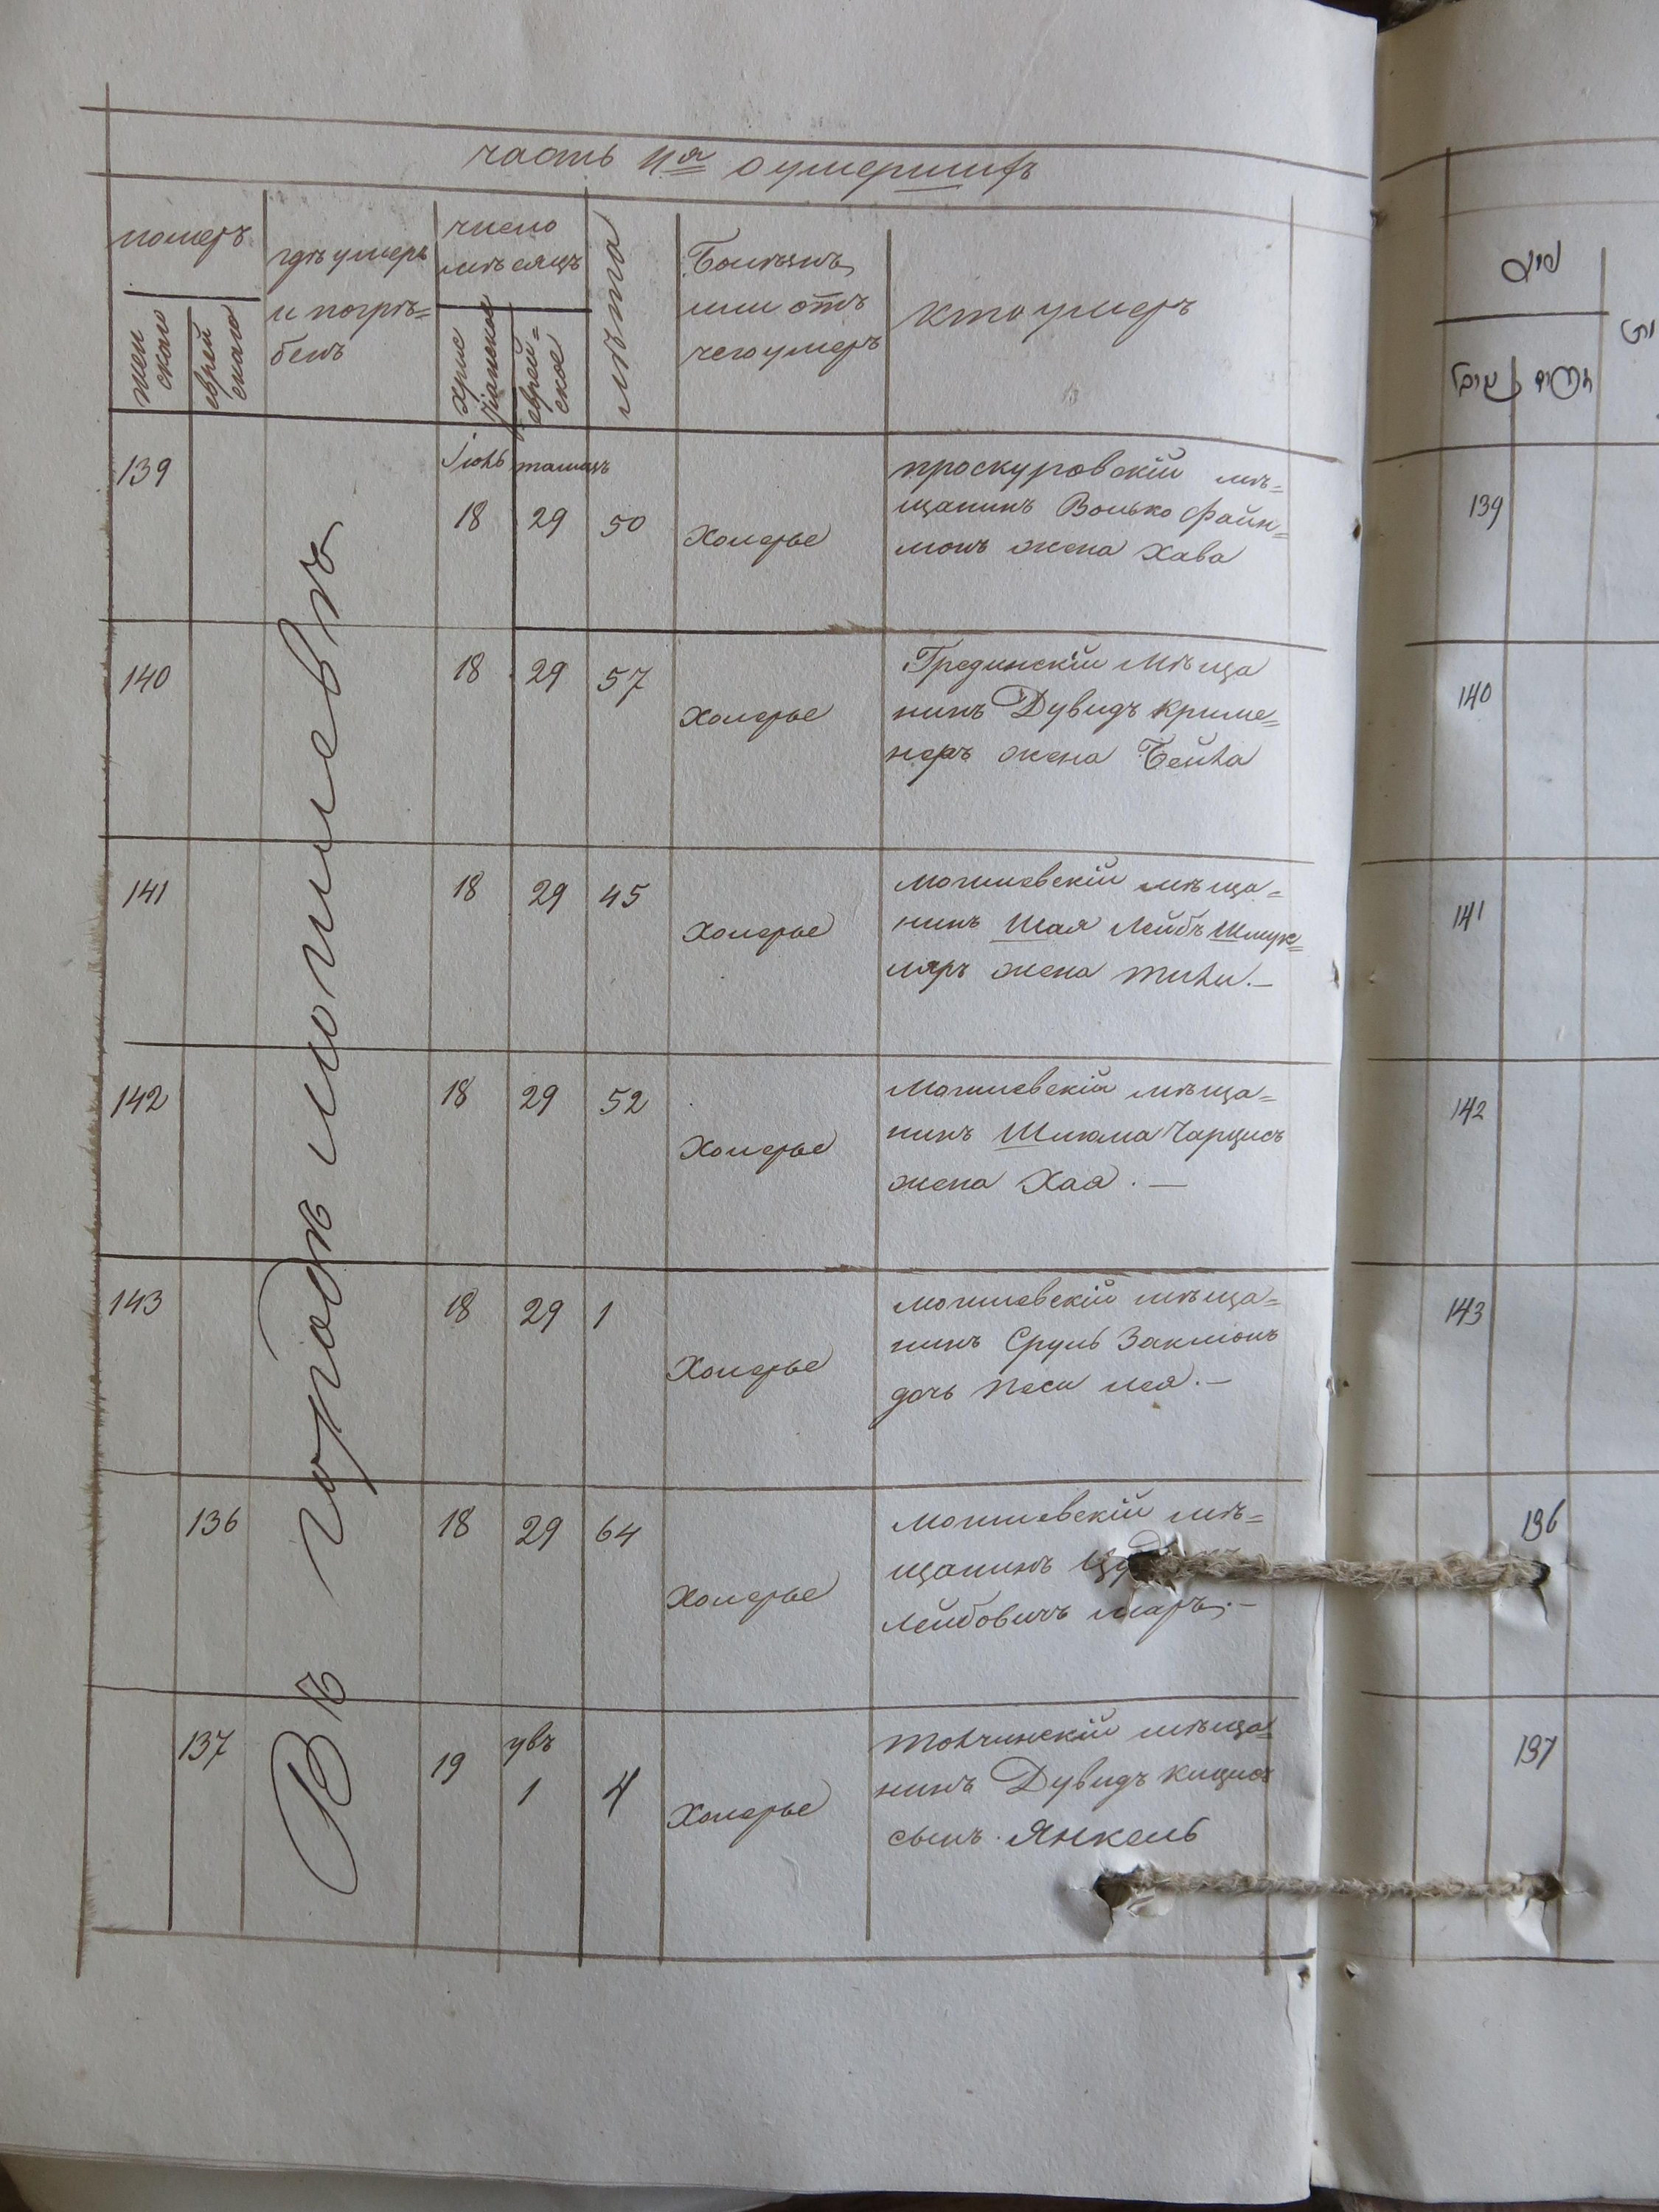 часть 4ая о умершихъ
номеръ
жен
скаго
еврей
скаго
гдѣ умеръ
и погрѣ=
бенъ
число
мѣсяцъ
хрис
тіанское
еврей=
ское
лѣта
Болѣзнь
или отъ
чего умеръ
кто умеръ
Въ городѣ могилевѣ
139
Іюль тамузъ
18 29 50
Холерье
проскуровскій мѣ=
щанинъ Волько Файн=
монъ жена Хава
140
18 29 57
Холерье
Грединскій мѣща
нинъ Дувидъ Криме=
неръ жена Бейла
141
18 29 45
Холерье
могилевскій мѣща=
нинъ Шая Лейбъ Шмук=
ляръ жена
142
18 29 52
Холерье
Могилевскій мѣща=
нинъ Шлюма Чарцисъ
жена Хая . —
143
18 29 1
Холерье
могилевскій мѣща=
нинъ Сруль Закмонъ
дочь Песи лея . —
136
18 29 64
Холерье
могилевскій мѣ=
щанинъ
Лейбовичъ
137
19
увъ
1
4
Холерье
мѣща=
нинъ Дувидъ Кицисъ
сынъ Янкель
139
140
141
142
143
136
137